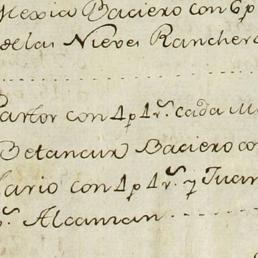 Mexico Baciero con 6 p
de las Nieves Ranchero
Partor con 4 p 4 r.s cada M
Betancur Baciero co
lario con 4 p 4 r.s y Juan
Alcantan